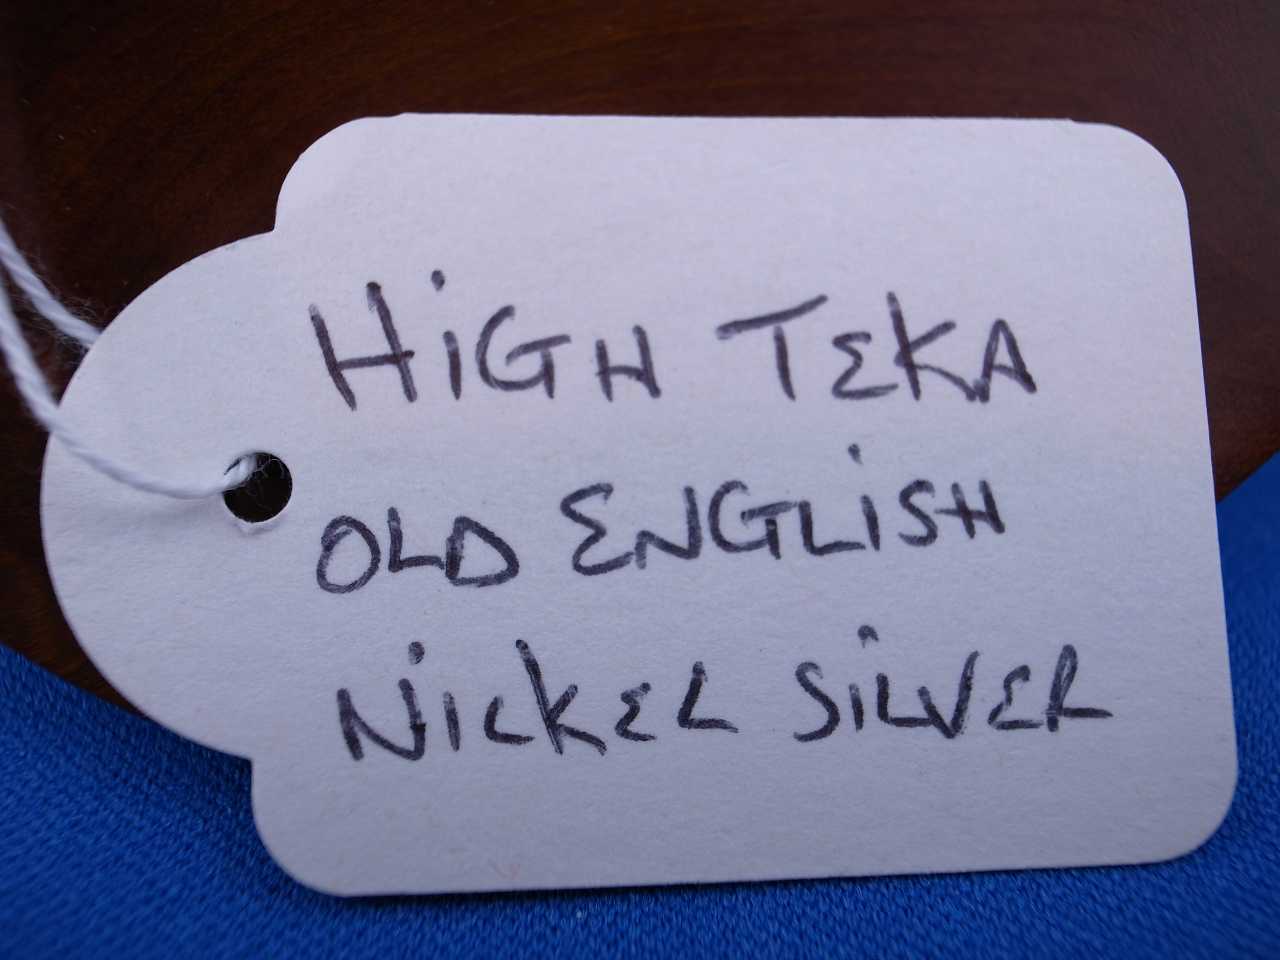 HIGH TEKA
OLD ENGLISH
NICKEL SILVER